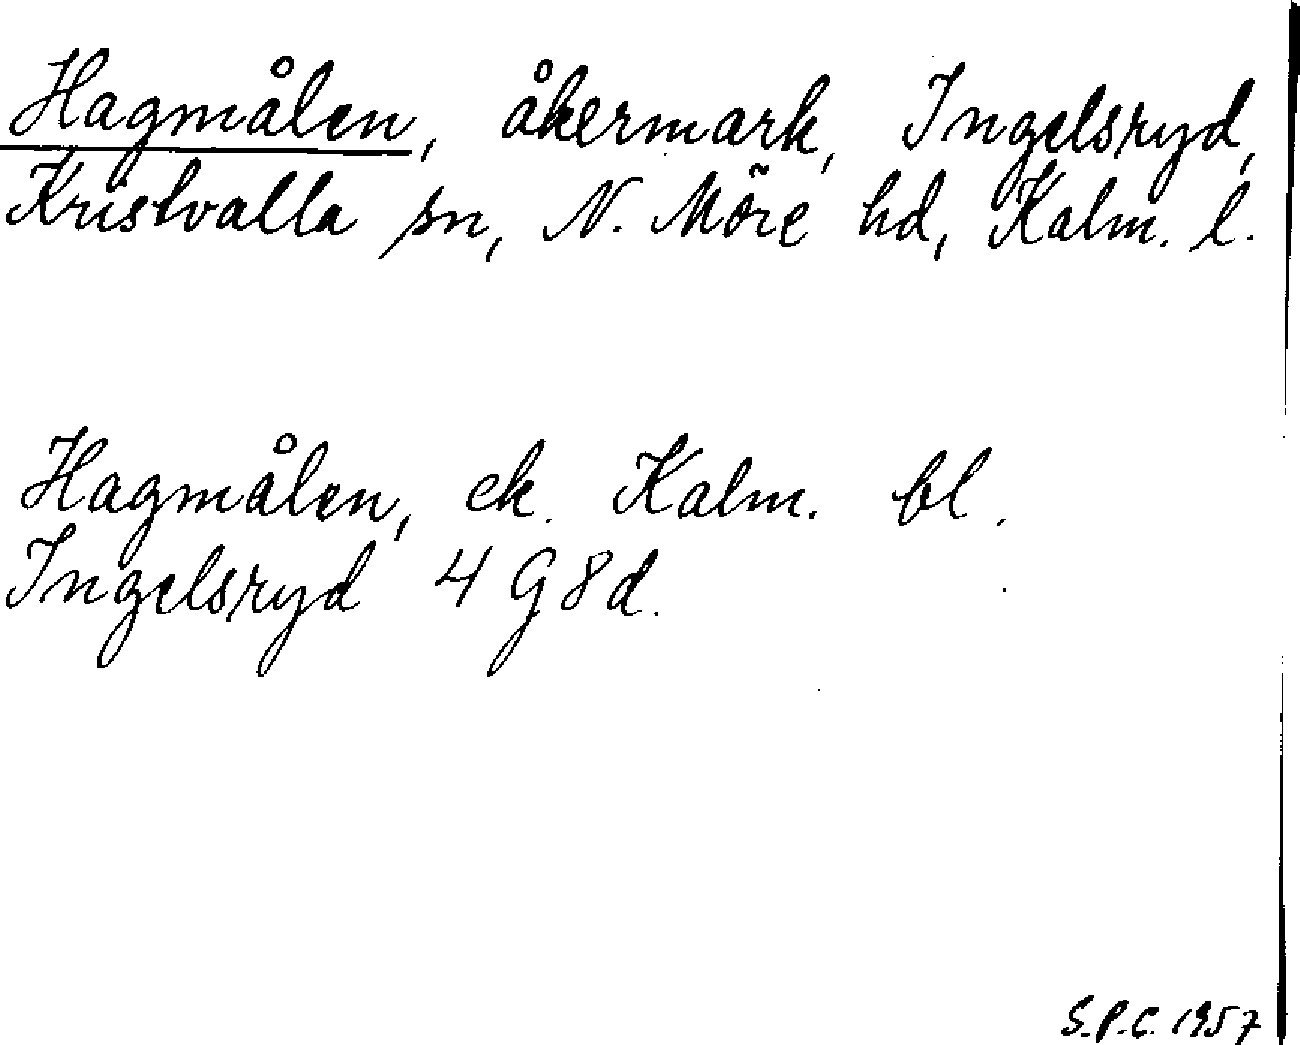 Hagmålen, åkermark, Ingelsryd,
Kristvalla sn, N. Möre hd, Kalm. l.
Hagmålen, ek. Kalm. bl.
Ingelsryd 4 G 8 d.
S.P.C. 1957